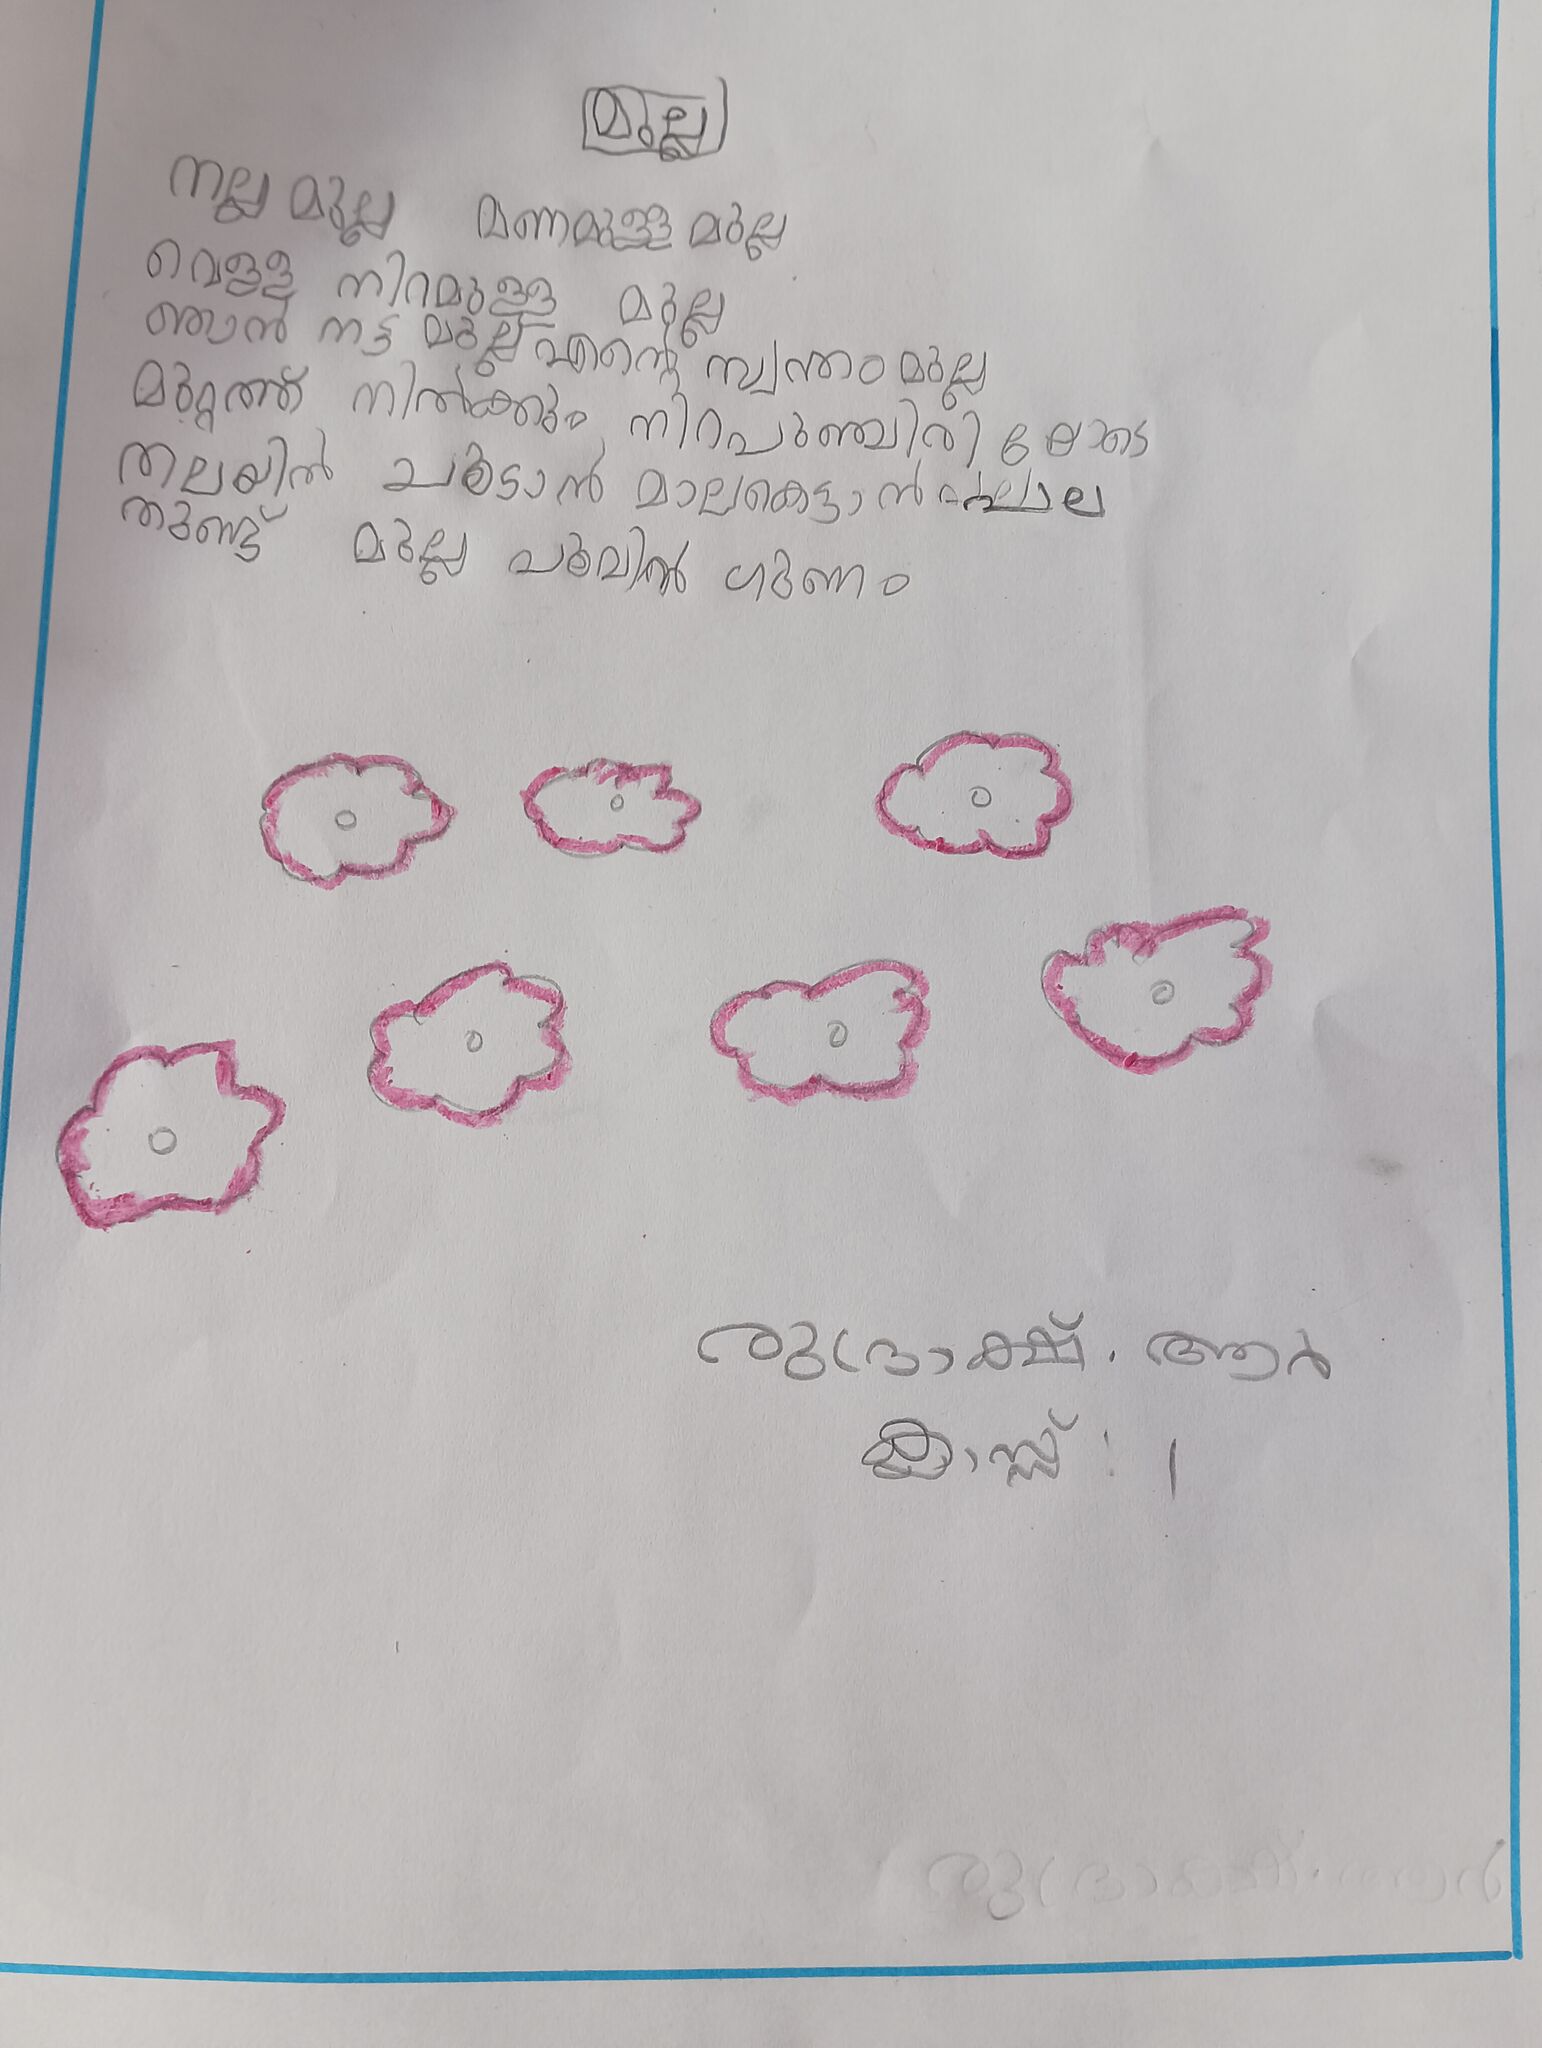 മുല്ല
നല്ല മുല്ല മണമുള്ള മുല്ല
വെള്ള നിറമുള്ള മുല്ല
ഞാൻ നട്ട മുല്ല എന്റെ സ്വന്തം മുല്ല
മുറ്റത്ത് നിൽക്കും നിറപുഞ്ചിരി യോടെ
തലയിൽ ചൂടാൻ മാലകെട്ടാൻ പല
തുണ്ട് മുല്ല പൂവിൻ ഗുണം
രുദ്രാക്ഷ്. ആർ
ക്ലാസ്സ് : 1
രുദ്രാക്ഷ്. ആർ